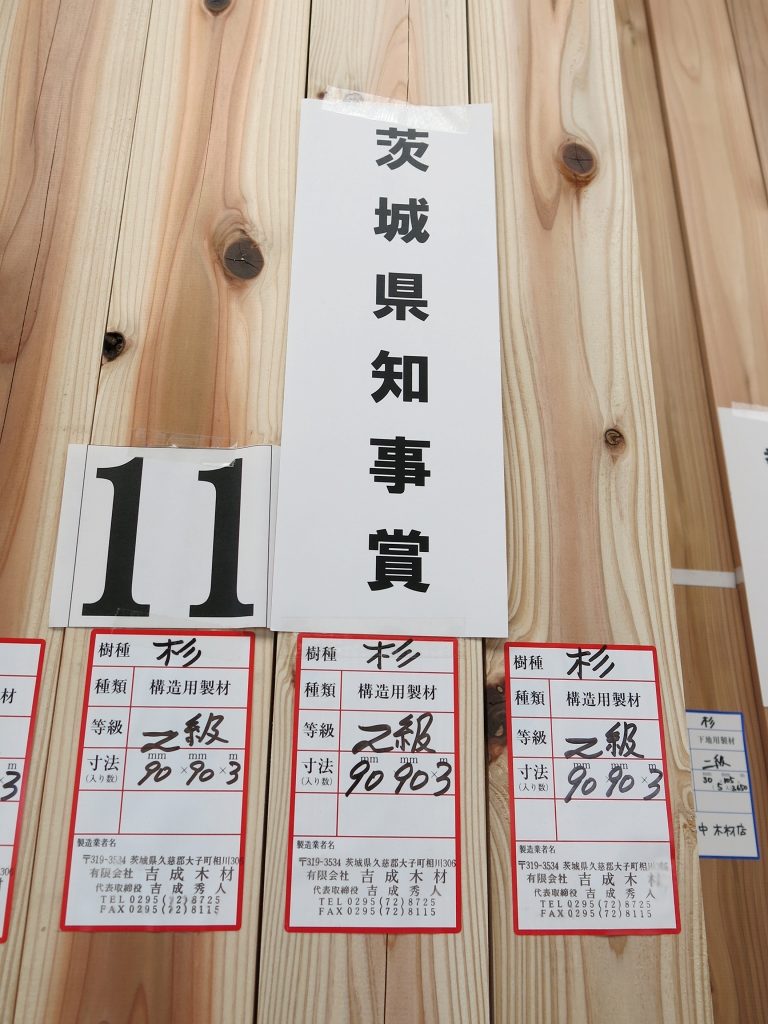 茨城県知事賞
11
材
m
3
樹種 杉
種類 構造用製材
等級 乙級
寸法 mm mm m
(入り数) 90×90×3
製造業者名
〒319-3534 茨城県久慈郡大子町相川306
有限会社 吉成木材
代表取締役 吉成秀人
TEL 0295(72)8725
FAX 0295(72)8115
樹種 杉
種類 構造用製材
等級 乙級
寸法 mm mm m
(入り数) 90 90×3
製造業者名
〒319-3534 茨城県久慈郡大子町相川306
有限会社 吉成木材
代表取締役 吉成秀人
TEL 0295(72)8725
FAX 0295(72)8115
樹種 杉
種類 構造用製材
等級 乙級
寸法 mm mm m
(入り数) 90×90×3
製造業者名
〒319-3534 茨城県久慈郡大子町相川
有限会社 吉成木材
代表取締役 吉成秀人
TEL 0295(72)8725
FAX 0295(72)8115
杉
下地用製材
二級
30 105
中木材店